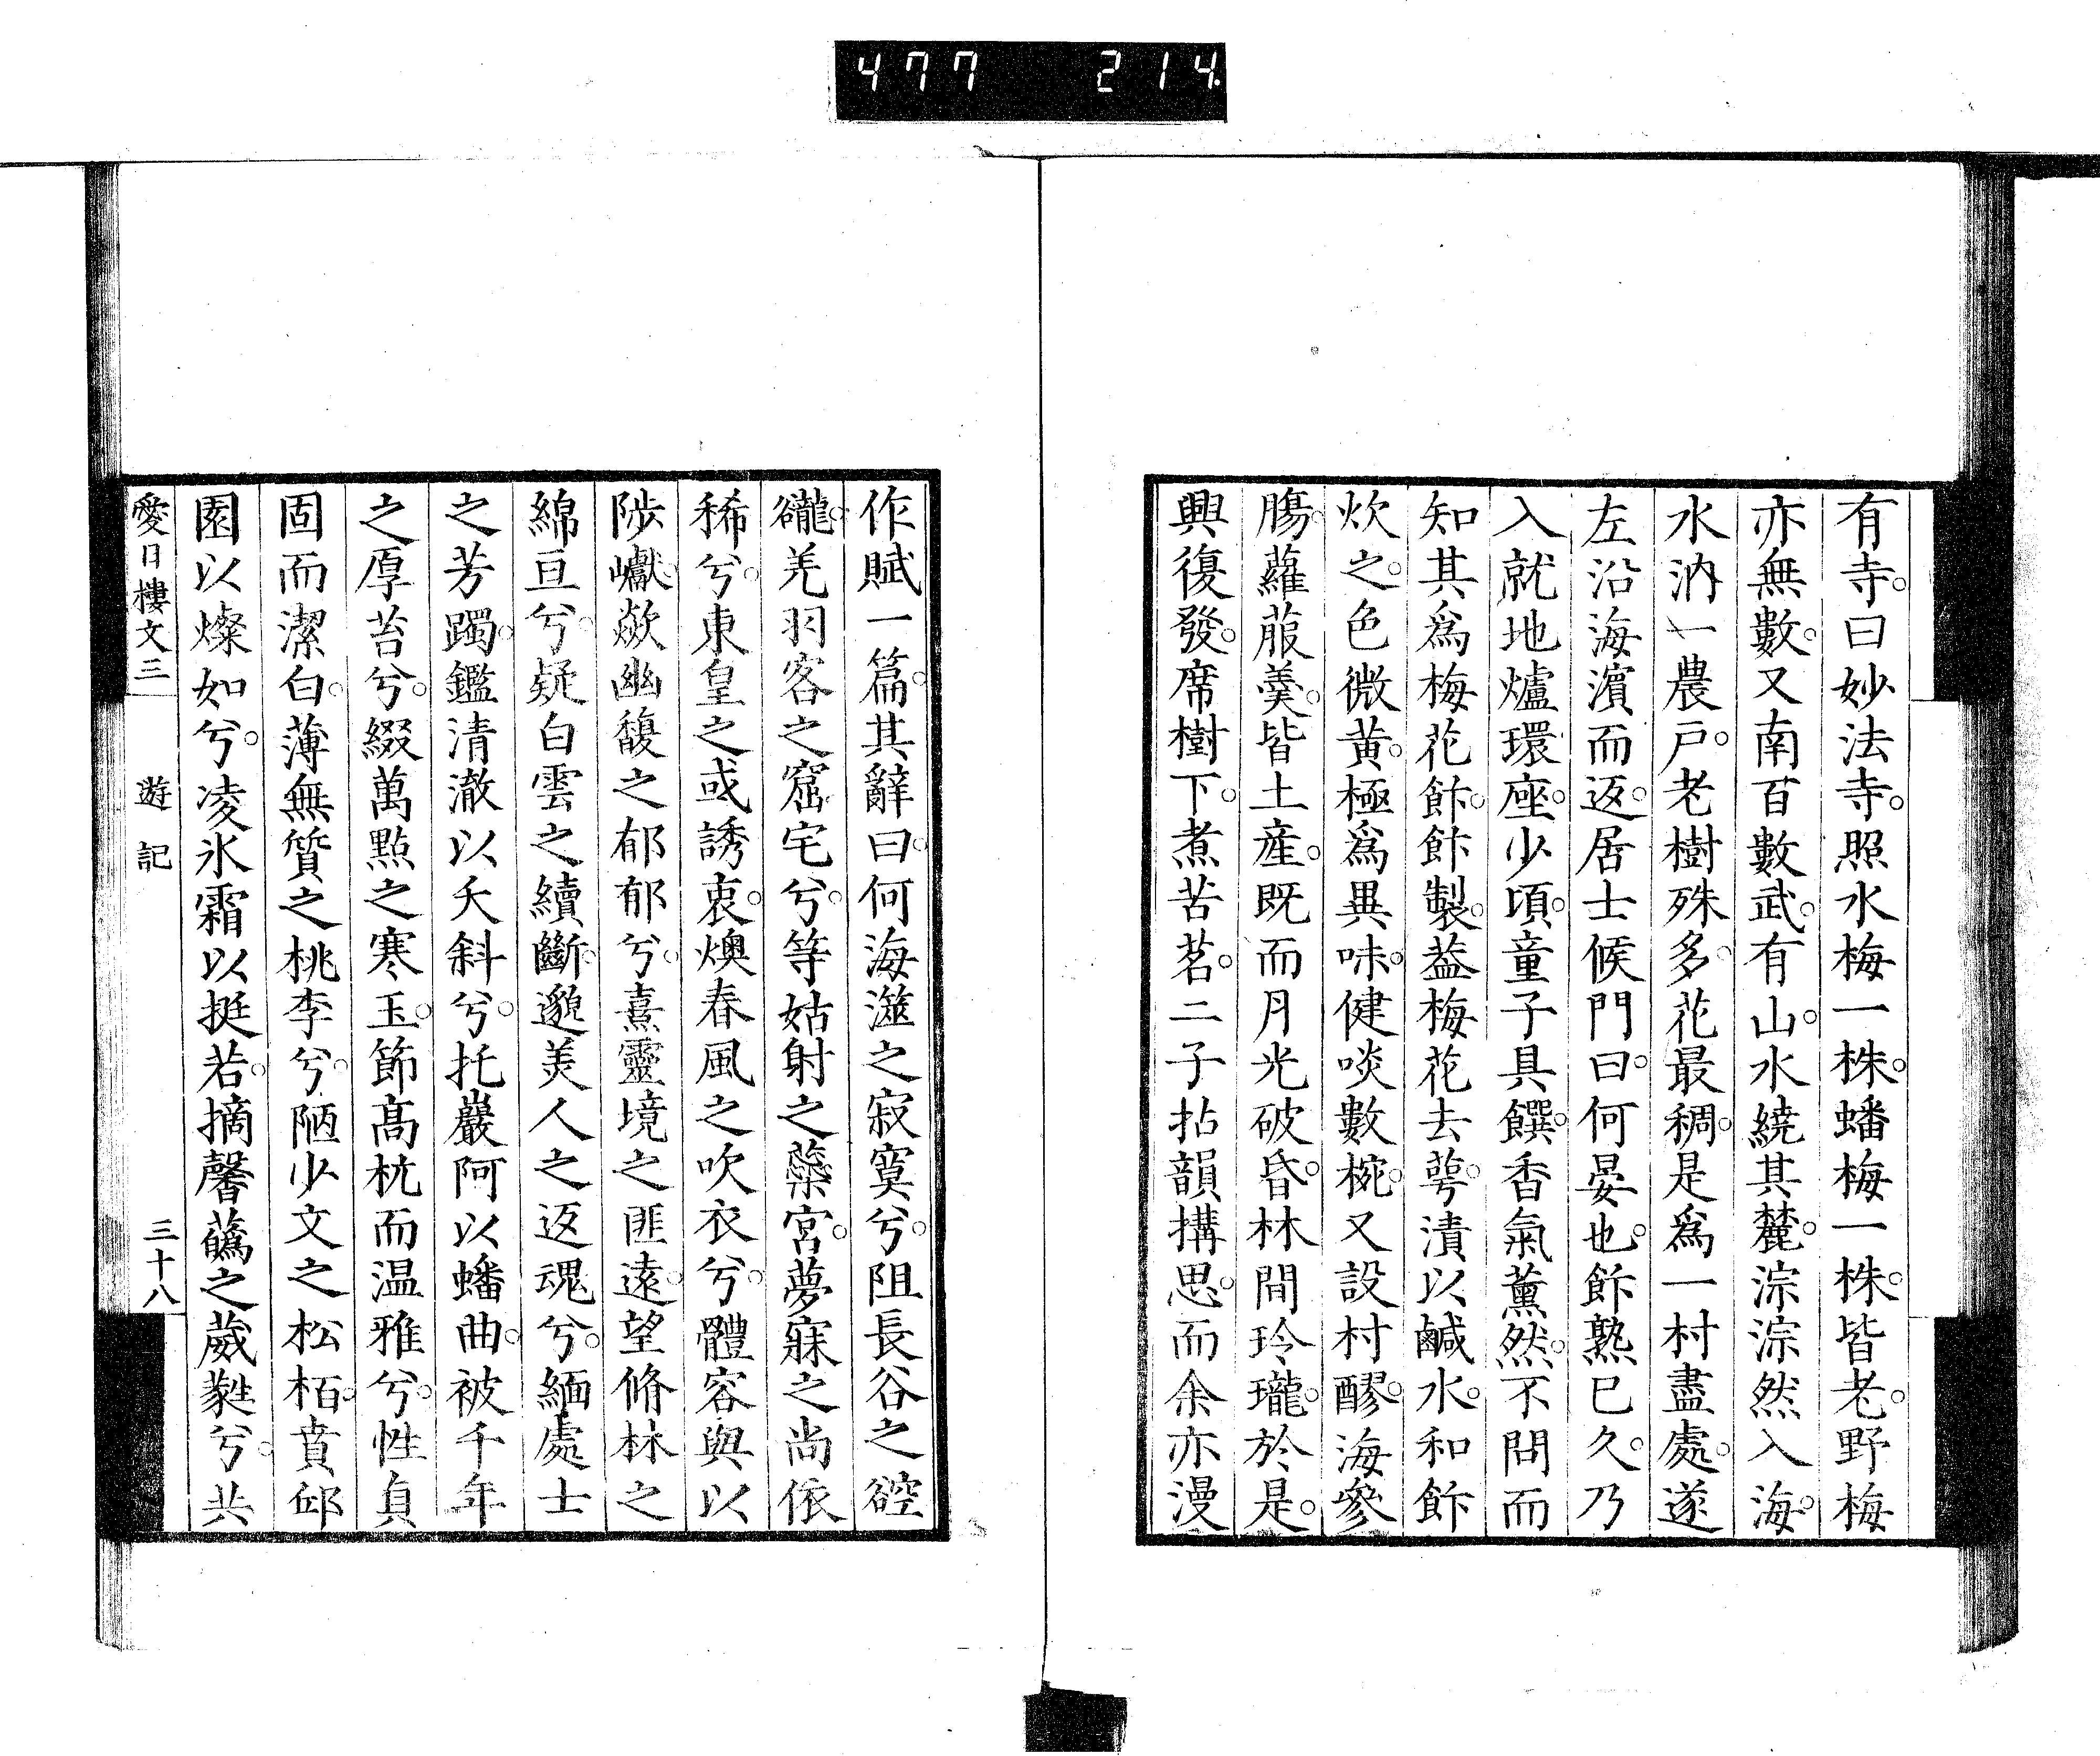 477 214
有寺。曰妙法寺。照水梅一株。蟠梅一株。皆老。野梅
亦無數。又南百數武。有山。水繞其麓。淙淙然入海。
水汭一農戶。老樹殊多。花最稠。是爲一村盡處。遂
左沿海濱而返。居士候門曰。何晏也。飰熟已久。乃
入就地爐環座。少頃。童子具饌。香氣薰然。不問而
知其爲梅花飰。飰製。葢梅花去萼。漬以鹹水。和飰
炊之。色微黄。極爲異味。健啖數椀。又設村醪。海參
膓。蘿菔羹。皆土產。既而月光破昏。林間玲瓏。於是。
興復發。席樹下。煮苦茗。二子拈韻搆思。而余亦漫
作賦一篇。其辭曰。何海澨之寂寞兮。阻長谷之谾
豅。羌羽客之窟宅兮。等姑射之蘂宮。夢寐之尚依
稀兮。東皇之或誘衷。燠春風之吹衣兮。體容與以
陟巘。歘幽馥之郁郁兮。熹靈境之匪遠。望脩林之
綿亘兮。疑白雲之續斷。邈美人之返魂兮。緬處士
之芳躅。鑑清澈以夭斜兮。托巖阿以蟠曲。被千年
之厚苔兮。綴萬點之寒玉。節高杭而温雅兮。性貞
固而潔白。薄無質之桃李兮。陋少文之松栢。賁邱
園以燦如兮。凌氷霜以挺若。摘馨蘤之葳蕤兮。共
愛日樓文三 遊記 三十八